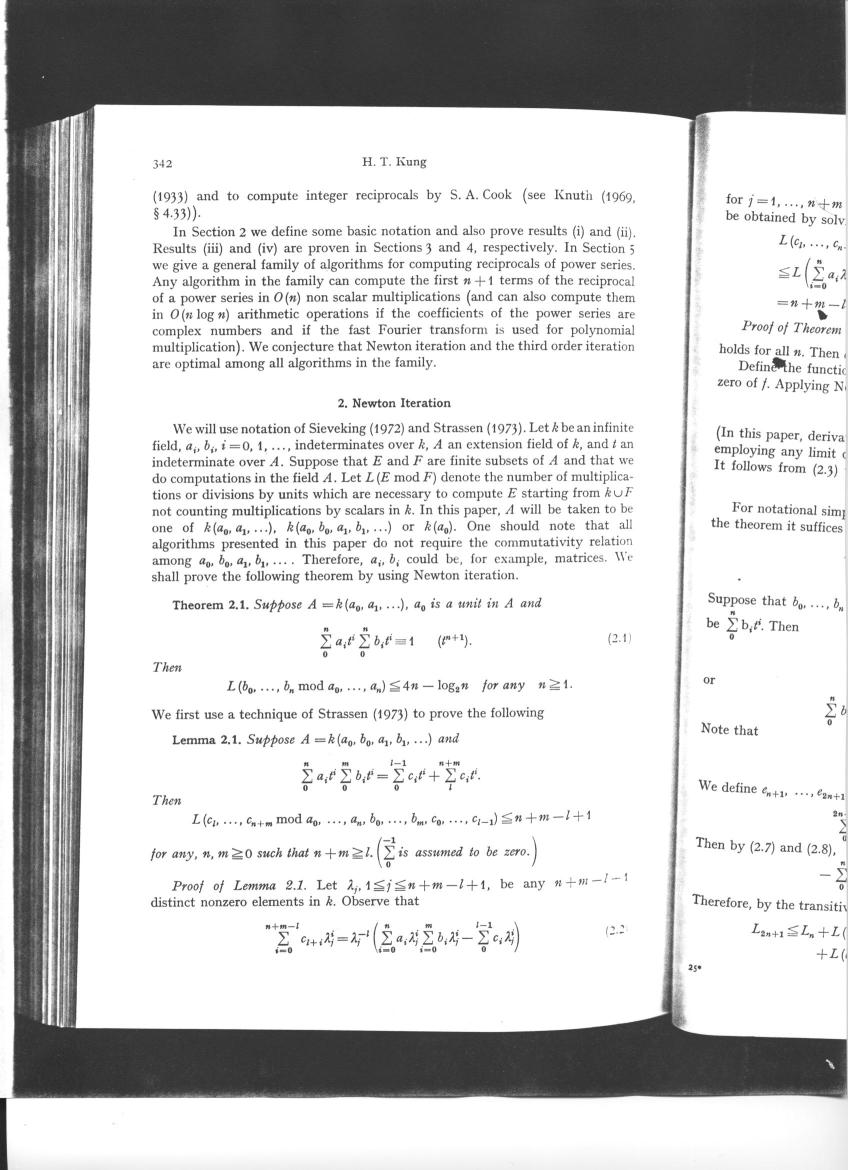 342
H. T. Kung
(1933) and to compute integer reciprocals by S. A. Cook (see Knuth (1969,
§ 4.33)).
In Section 2 we define some basic notation and also prove results (i) and (ii).
Results (iii) and (iv) are proven in Sections 3 and 4, respectively. In Section 5
we give a general family of algorithms for computing reciprocals of power series.
Any algorithm in the family can compute the first n + 1 terms of the reciprocal
of a power series in O(n) non scalar multiplications (and can also compute them
in O(n log n) arithmetic operations if the coefficients of the power series are
complex numbers and if the fast Fourier transform is used for polynomial
multiplication). We conjecture that Newton iteration and the third order iteration
are optimal among all algorithms in the family.
2. Newton Iteration
We will use notation of Sieveking (1972) and Strassen (1973). Let k be an infinite
field, a_i, b_i, i = 0, 1, ..., indeterminates over k, A an extension field of k, and t an
indeterminate over A. Suppose that E and F are finite subsets of A and that we
do computations in the field A. Let L(E mod F) denote the number of multiplica-
tions or divisions by units which are necessary to compute E starting from k ∪ F
not counting multiplications by scalars in k. In this paper, A will be taken to be
one of k(a_0, a_1, ...), k(a_0, b_0, a_1, b_1, ...) or k(a_0). One should note that all
algorithms presented in this paper do not require the commutativity relation
among a_0, b_0, a_1, b_1, .... Therefore, a_i, b_i could be, for example, matrices. We
shall prove the following theorem by using Newton iteration.
Theorem 2.1. Suppose A = k(a_0, a_1, ...), a_0 is a unit in A and
∑_0^n a_i t^i ∑_0^n b_i t^i ≡ 1 (t^{n+1}). (2.1)
Then
L(b_0, ..., b_n mod a_0, ..., a_n) ≦ 4n − log_2 n for any n ≧ 1.
We first use a technique of Strassen (1973) to prove the following
Lemma 2.1. Suppose A = k(a_0, b_0, a_1, b_1, ...) and
∑_0^n a_i t^i ∑_0^m b_i t^i = ∑_0^{l−1} c_i t^i + ∑_l^{n+m} c_i t^i.
Then
L(c_l, ..., c_{n+m} mod a_0, ..., a_n, b_0, ..., b_m, c_0, ..., c_{l−1}) ≦ n + m − l + 1
for any, n, m ≧ 0 such that n + m ≧ l. (∑_0^{−1} is assumed to be zero.)
Proof of Lemma 2.1. Let λ_j, 1 ≦ j ≦ n + m − l + 1, be any n + m − l − 1
distinct nonzero elements in k. Observe that
∑_{i=0}^{n+m−l} c_{l+i} λ_j^i = λ_j^{−l} (∑_{i=0}^n a_i λ_j^i ∑_{i=0}^m b_i λ_j^i − ∑_0^{l−1} c_i λ_j^i) (2.2
for j = 1, ..., n + m
be obtained by solv
L(c_l, ..., c_n
≦ L (∑_{i=0}^n a_i
= n + m − l
Proof of Theorem
holds for all n. Then
Define the functio
zero of f. Applying N
(In this paper, deriva
employing any limit
It follows from (2.3)
For notational simp
the theorem it suffices
Suppose that b_0, ..., b_n
be ∑_0^n b_i t^i. Then
or
∑_0^n b
Note that
We define e_{n+1}, ..., e_{2n+1}
2n
∑
0
Then by (2.7) and (2.8),
− ∑_0^n
Therefore, by the transitiv
L_{2n+1} ≦ L_n + L(
+ L(
25*